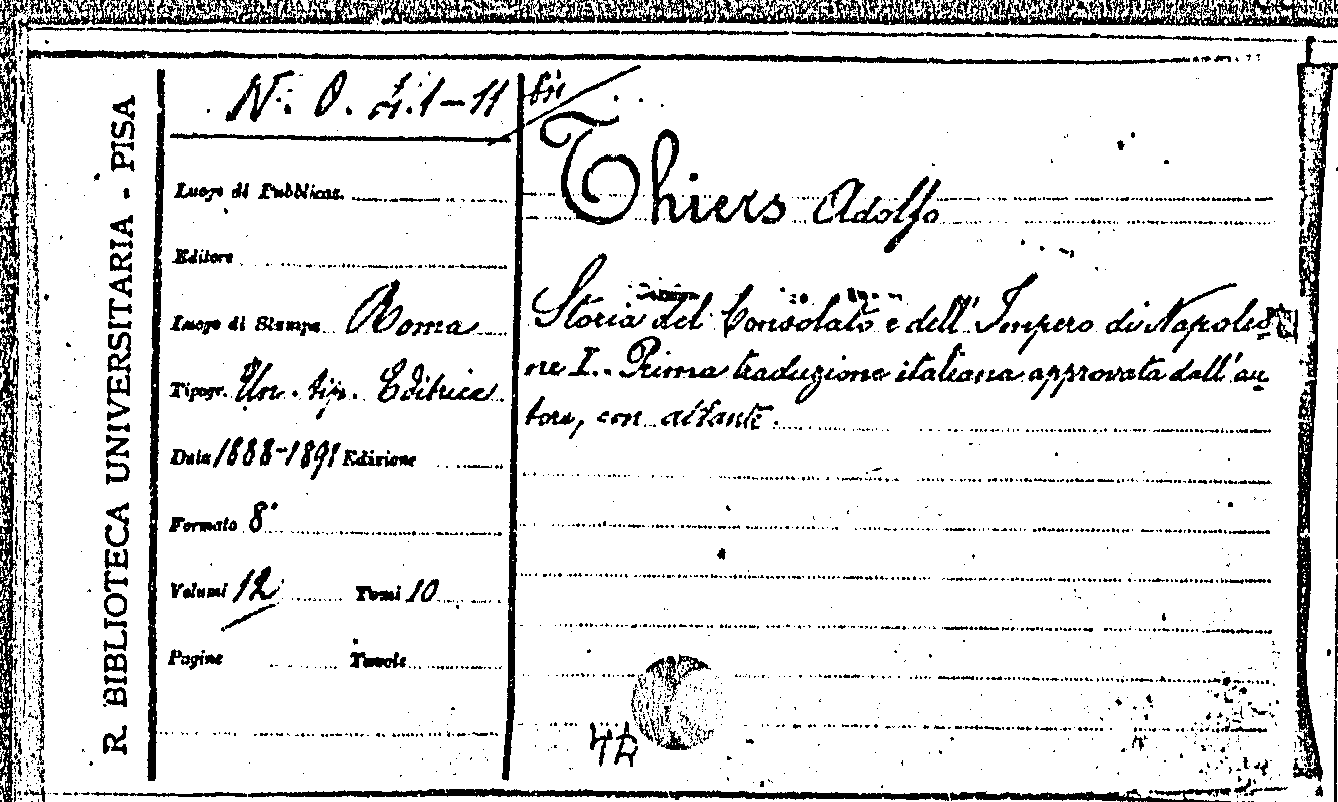 R. BIBLIOTECA UNIVERSITARIA - PISA
N. O. 1-11 bis
Luogo di Pubblicaz.
Editore
Luogo di Stampa Roma
Tipogr. Un. tip. Editrice
Data 1888-1891 Edizione
Formato 8°
Volumi 12 Tomi 10
Pagine Tavole
Thiers Adolfo
Storia del Consolato e dell' Impero di Napoleo
ne I. - Prima traduzione italiana approvata dall' au
tore, con atlante.